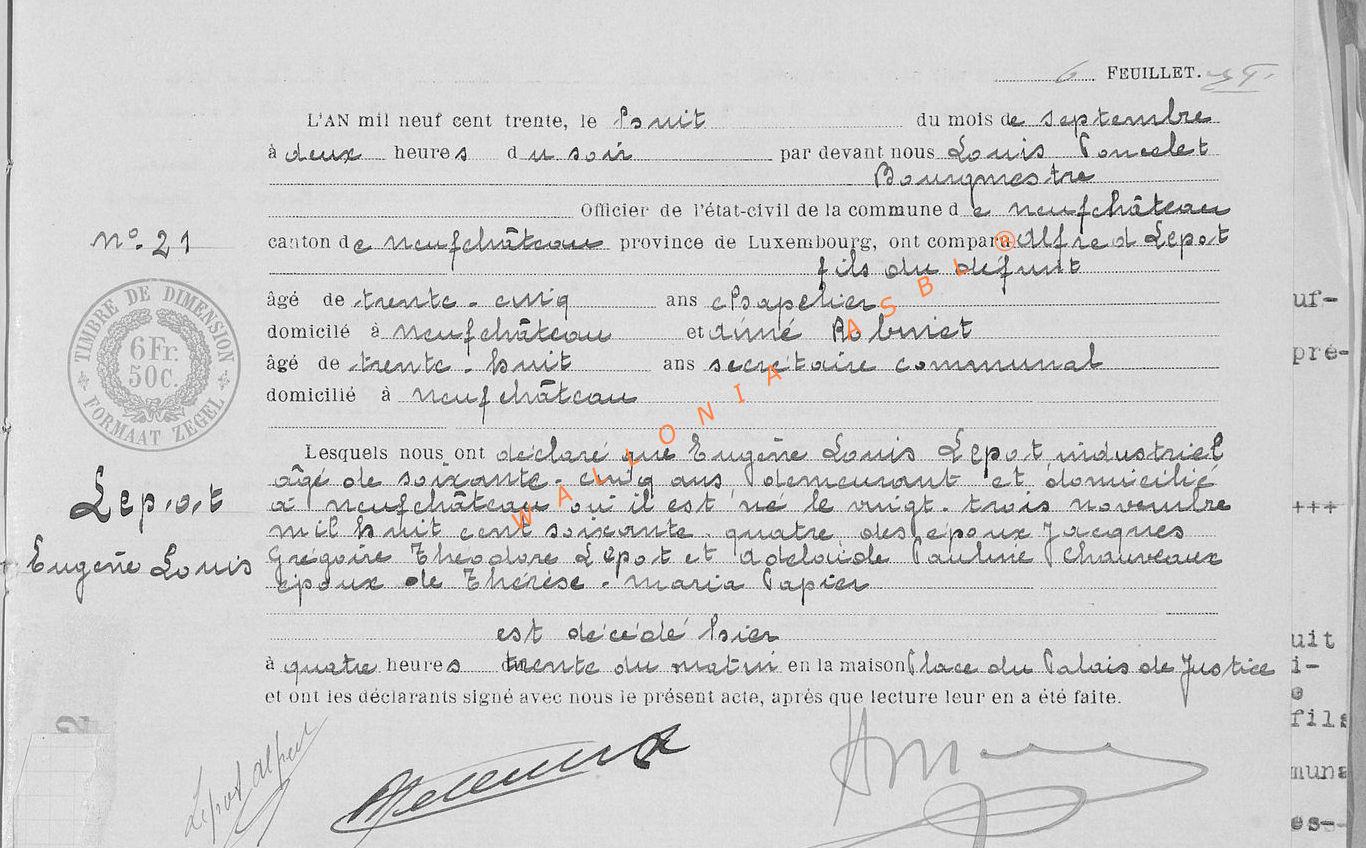 6 FEUILLET.
L'AN mil neuf cent trente, le huit du mois de septembre
à deux heures du soir par devant nous Louis Poncelet
Bourgmestre
Officier de l'état-civil de la commune de neufchâteau
n°. 21
canton de neufchâteau province de Luxembourg, ont comparu Alfred Lepot
fils du défunt
âgé de trente-cinq ans chapelier
domicilé à neufchâteau et aimé Robinet
âgé de trente-huit ans secrétaire communal
domicilié à neufchâteau
TIMBRE DE DIMENSION
6 Fr.
50c.
FORMAAT ZEGEL
WALLONIA ASBL
Lesquels nous ont déclaré que Eugène Louis Lepot industriel
âgé de soixante-cinq ans demeurant et domicilié
à neufchâteau où il est né le vingt-trois novembre
mil huit cent soixante quatre des époux Jacques
Grégoire Théodore Lepot et adelaïde Pauline Chauveaux
époux de Thérèse-maria Papier
Lepot
Eugène Louis
est décédé hier
à quatre heures trente du matin en la maison Place du Palais de Justice
et ont les déclarants signé avec nous le présent acte, après que lecture leur en a été faite.
Lepot alfred
uf-
pré-
+++
uit
i-
e
fils
muna
es-